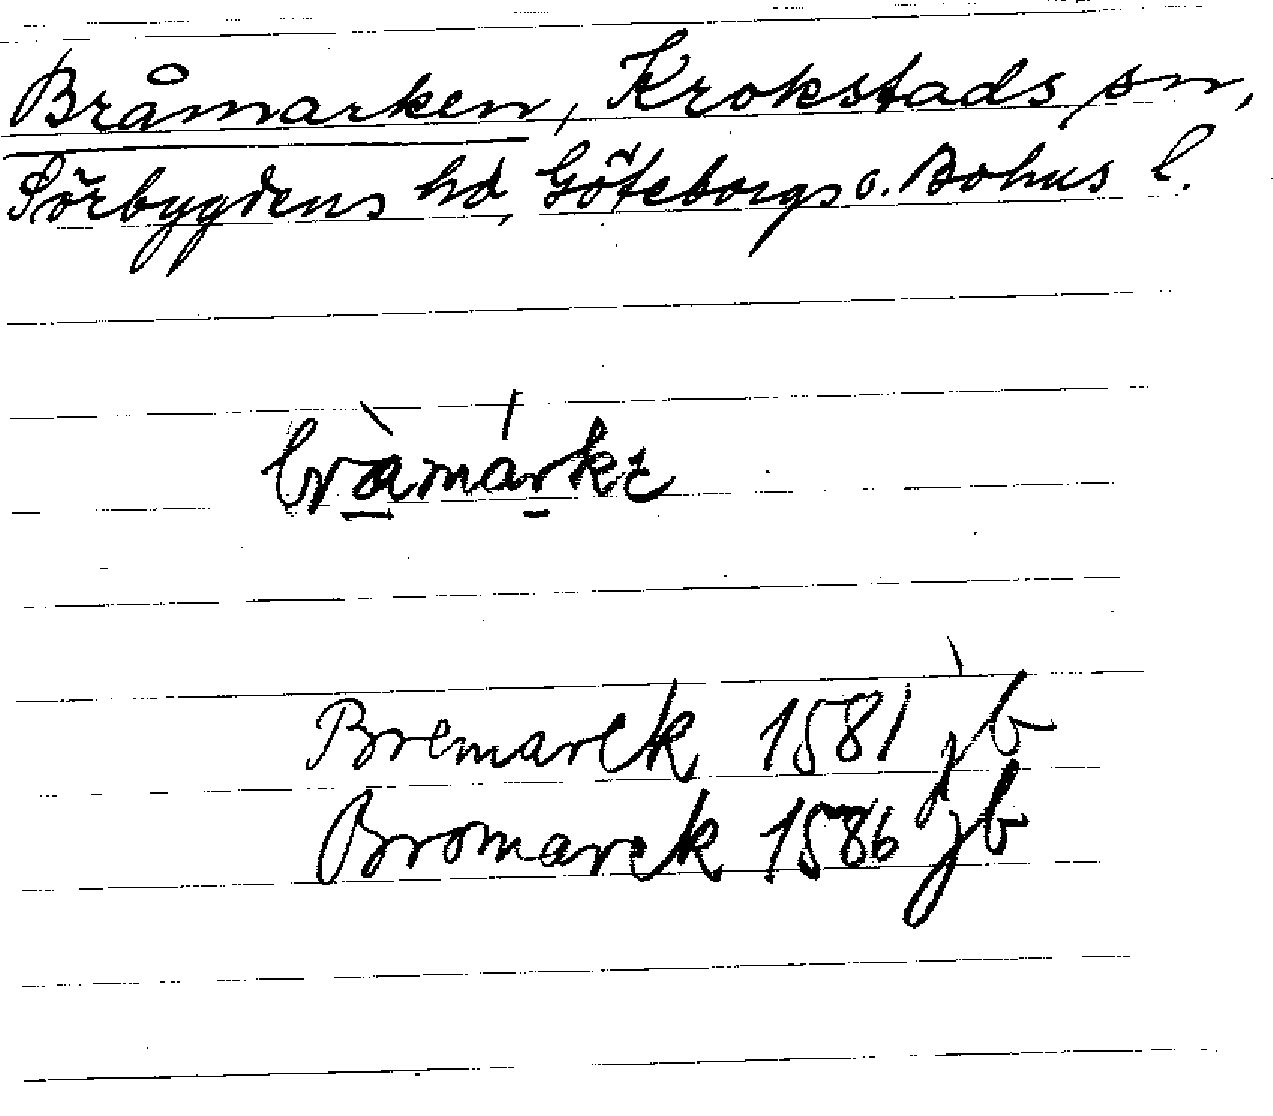 Bråmarken, Krokstads sn,
Sörbygdens hd, Göteborgs o. Bohus l.
Bremarck 1581 jb
Bromarck 1586 jb